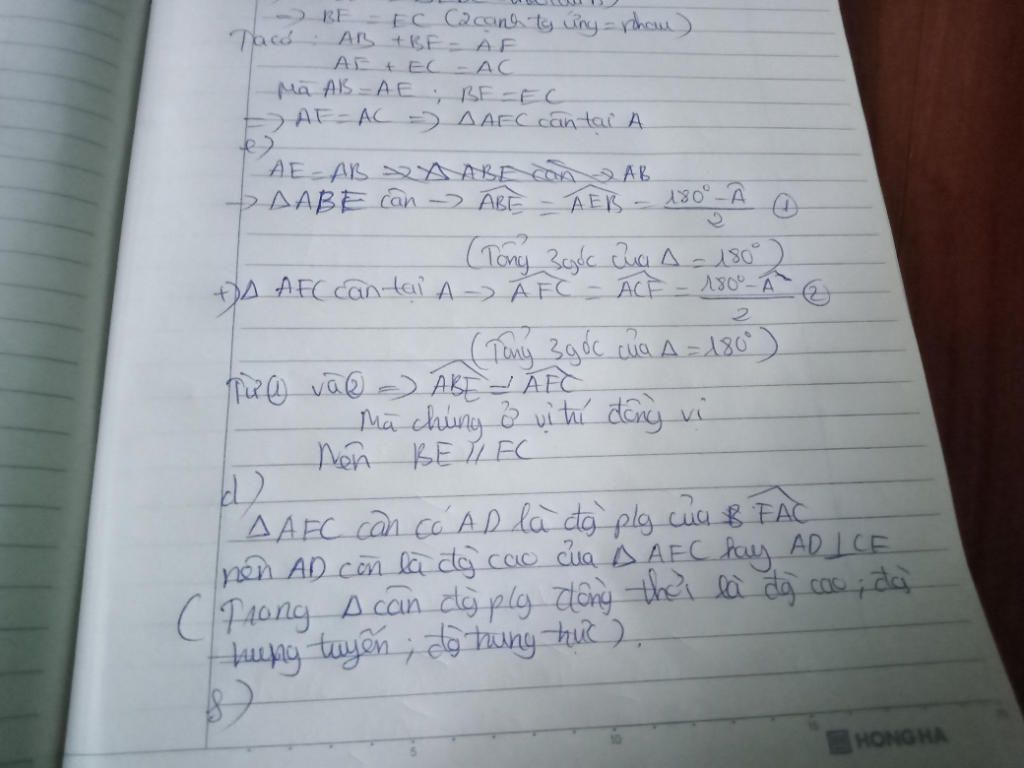 → BF = EC (2 cạnh tg ứng = nhau)
Ta có : AB + BF = AF
AE + EC = AC
Mà AB = AE ; BF = EC
=> AF = AC => Δ AFC cân tại A
e)
AE = AB => Δ ABE cân → AB
→ Δ ABE cân → ABE = AEB = 180° - A / 2 ①
(Tổng 3 góc của Δ = 180°)
+) Δ AFC cân tại A → AFC = ACF = 180° - A / 2 ②
(Tổng 3 góc của Δ = 180°)
Từ ① và ② => ABE = AFC
Mà chúng ở vị trí đồng vị
Nên BE // FC
d)
Δ AFC cân có AD là đg plg của FAC
nên AD còn là đg cao của Δ AFC hay AD ⊥ CF
( Trong Δ cân đg plg đồng thời là đg cao ; đg
trung tuyến ; đg trung trực ).
g)
5 10 15
HONG HA